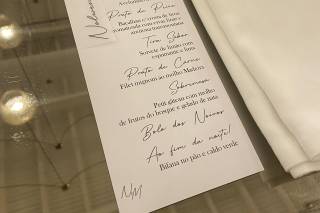 Prato de Peixe
Bacalhau
Tira Sabor
Sorvete de limão com
espumante e
Prato de Carne
Filet mignon ao molho Madeira
Sobremesa
Petit gâteau com molho
de frutos do bosque e gelado de nata
Bolo dos Noivos
Ao fim da noite!
Bifana no pão e caldo verde
NM